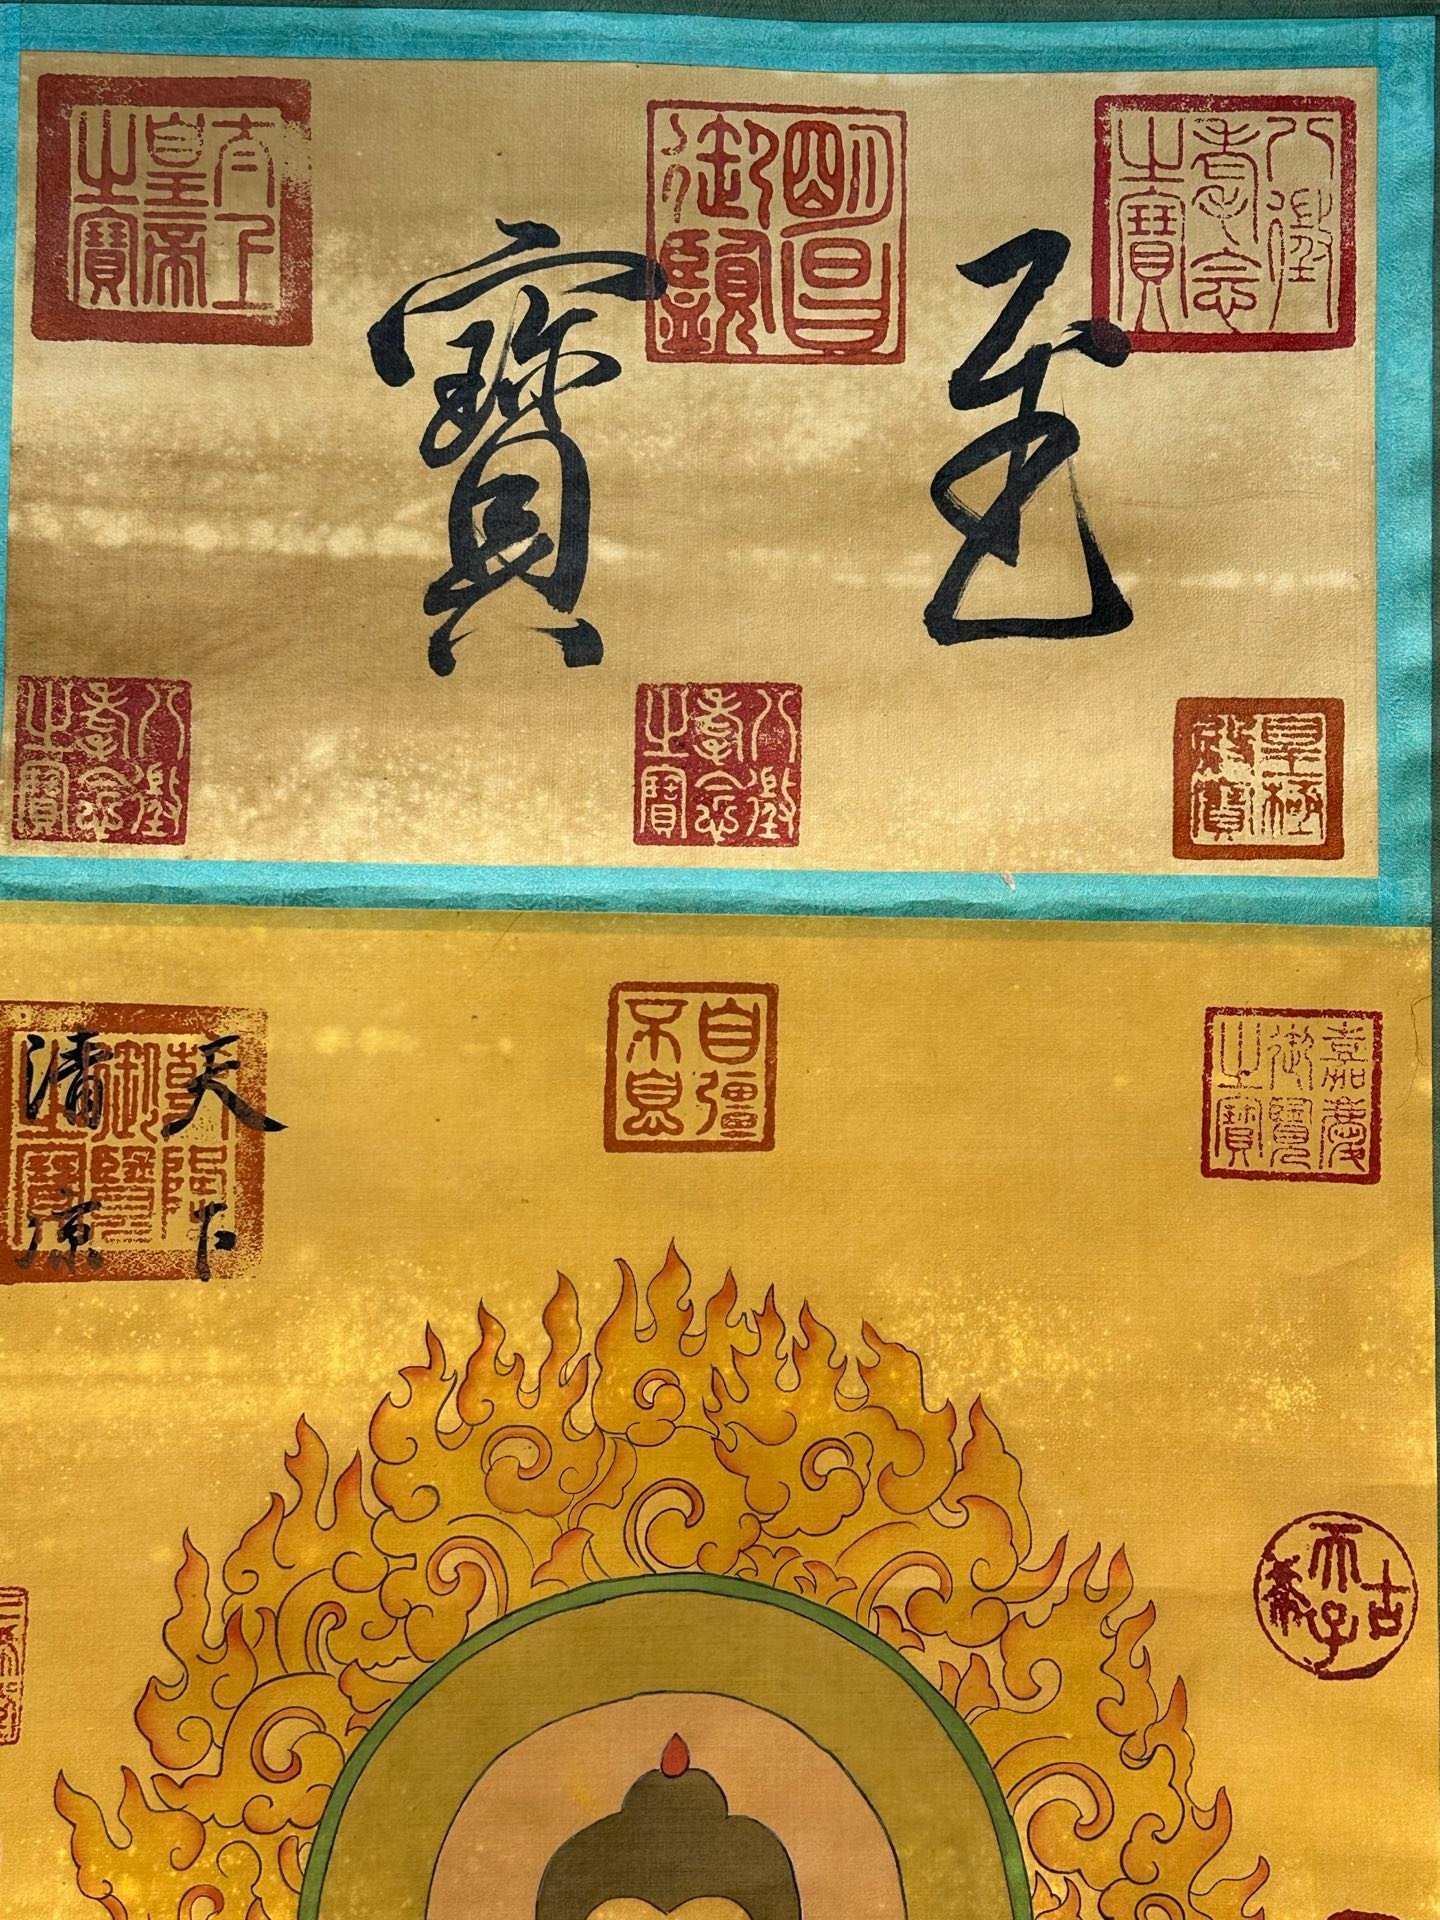 至寶
八徵耄念之寶
明昌御覽
太上皇帝之寶
皇極殿寶
八徵耄念之寶
八徵耄念之寶
嘉慶御覽之寶
自彊不息
乾隆御覽之寶
天下
清凉
古希天子